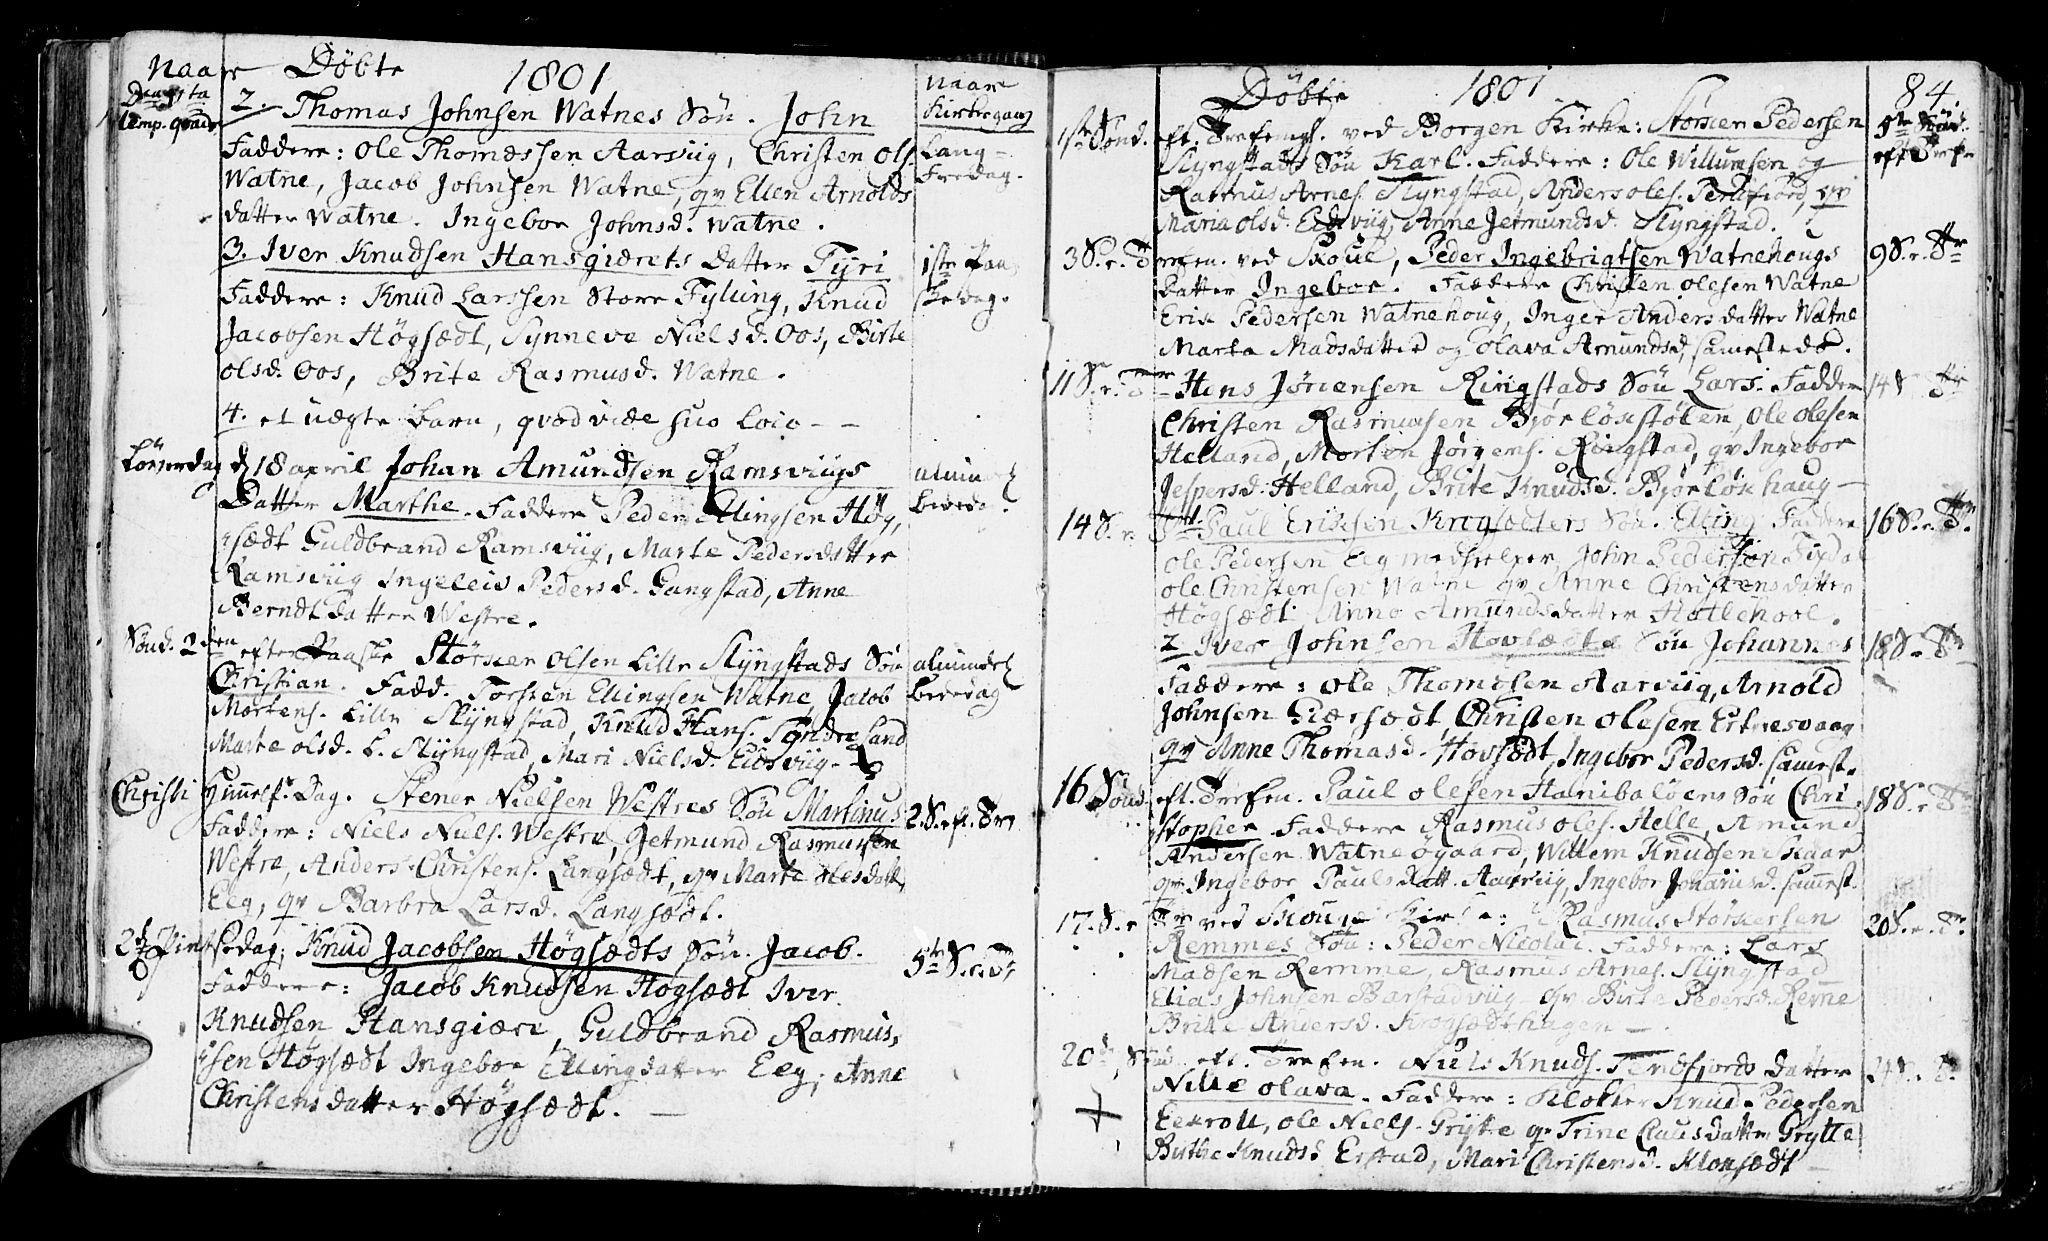 Naar Döbte 1801 Naar Kirkegang
Dnica 1sta temp. quadr. 2. Thomas Johnsen Watnes Sön. John
Faddere: Ole Thomæssen Aarsviig, Christen Ols. Lang-
Watne, Jacob Johnsen Watne, qv Ellen Arnolds Fredag.
datter Watne. Ingebor Johnsd. Watne.
3. Iver Knudsen Hansgiærets Datter Tyri 1ste Paa
Faddere: Knud Larssen Store Fylling, Knud skedag.
Jacobsen Högsædt, Synneve Nielsd. Oos, Birte
olsd. Oos, Brite Rasmusd. Watne.
4. et uægte barn, qvod vide suo loco - -
Löverdag d 18 april Johan Amundsen Ramsviigs almindel
Datter Marthe. Faddere Peder Ellingsen Hög, bededa.
sædt Guldbrand Ramsviig, Marte Pedersdatter
Ramsviig Ingeleiv Pedersd. Gangstad, Anne
Berndt Datter Westre.
Sönd. 2den efter Paaske Störker Olsen Lille Slyngstads Sön almindel
Christian. Fadd. Torsten Ellingsen Watne, Jacob Bededag
Mortens. Lille Slyngstad, Knud Hans. Söndre Land
Marte olsd. L. Slyngstad, Mari Nielsd. Eidsviig.
Christi Himelf. Dag. Stener Nielsen Westres Sön Martinus 2. S. eft. Tre
Faddere: Niels Niels. Westre, Jetmund Rasmussen
Westre, Anders Christens. Langsædt, qv Marte olesdatt
Eeg, qv Barbra Larsd. Langsædt.
2d Pintsedag; Knud Jacobsen Högsædts Sön. Jacob. 5te S. e. Tr
Faddere: Jacob Knudsen Högsædt Iver
Knudsen Hansgiære, Guldbrand Rasmus,
sen Högsædt Ingebor Ellingdatter Eeg, Anne
Christensdatter Högsædt.
Döbte 1801 84
1ste Sönd. eft. Trefengh. ved Borgen Kirke: Störker Pedersen 5te Sönd.
Slyngstads Sön Karl. Faddere: Ole Willumsen og eft Trefe
Rasmus Arnes. Slyngstad, Anders oles. Tendfiord, qv
Maria olsd. Eidsviig, Anne Jetmundsd. Slyngstad.
3 S. e. Trefen. ved Skoue, Peder Ingebrigtsen Watnehougs 9 S. e. Tr
Datter Ingebor. Faddere Christen olesen Watne
Erik Pedersen Watnehoug, Inger Anders datter Watne
Marta Madsdatter og Olava Amundsd samestedd.
11 S. e. Tr Hens Jörensen Ringstads Sön Lars. Fadder 14 S Tr
Christen Rasmussen Bjorlökstölen, Ole olesen
Helland, Morten Jörgens. Ringstad, qv Ingebor
Jespersd. Helland, Brite Knudsd. Bjorlökhaug -
14 S. e. Tr Paul Eriksen Krogsæters Sön. Elling Faddere 16 S. e. Tr.
Ole Pedersen Eeg medhielper, John Pedersen Fixdal
ole Christensen Watne qv Anne Christensdatter
Högsædt Anne Amundsdatter Hollehool.
2 Iver Johnsen Hovsædts Sön Johannes 18 S. Tr
Faddere: Ole Thomesen Aarviig, Arnold
Johnsen Giærsædt, Christen Olesen Erknesvaag
qv Anne Thomasd. Hovsædt, Ingebor Pedersd. samest.
16 Sönd. eft. Trefen. Paul olesen Hanibalöens Sön Chri, 18 S. e Tr
stopher Faddere Rasmus oles. Helle, Amund
Andersen Watneögaard, Willem Knudsen Skaar
qv Ingebor Pauls datt. Aarviig, Ingebor Johansd. samest.
17. S. e Tr ved Skouge Kirke: Rasmus Störkersen 20 S. e. Tr.
Remmes Sön: Peder Nicolai. Faddere: Lars
Madsen Remme, Rasmus Arnes. Slyngstad
Elias Johnsen Barstadviig qv Birte Pedersd. Reme
Brite Andersd. Krogsædthagen -.
20d, Sönd. eft. Trefen. Niels Knuds. Tendfjords datter 24 S. e Tr.
Nille olava. Faddere: Klokker Knud Pedersen
Eekroll, ole Niels. Grytte qv Trine Clausdatter Grytte
Birthe Knudsd Erstad, Mari Christensd. Kloksædt -